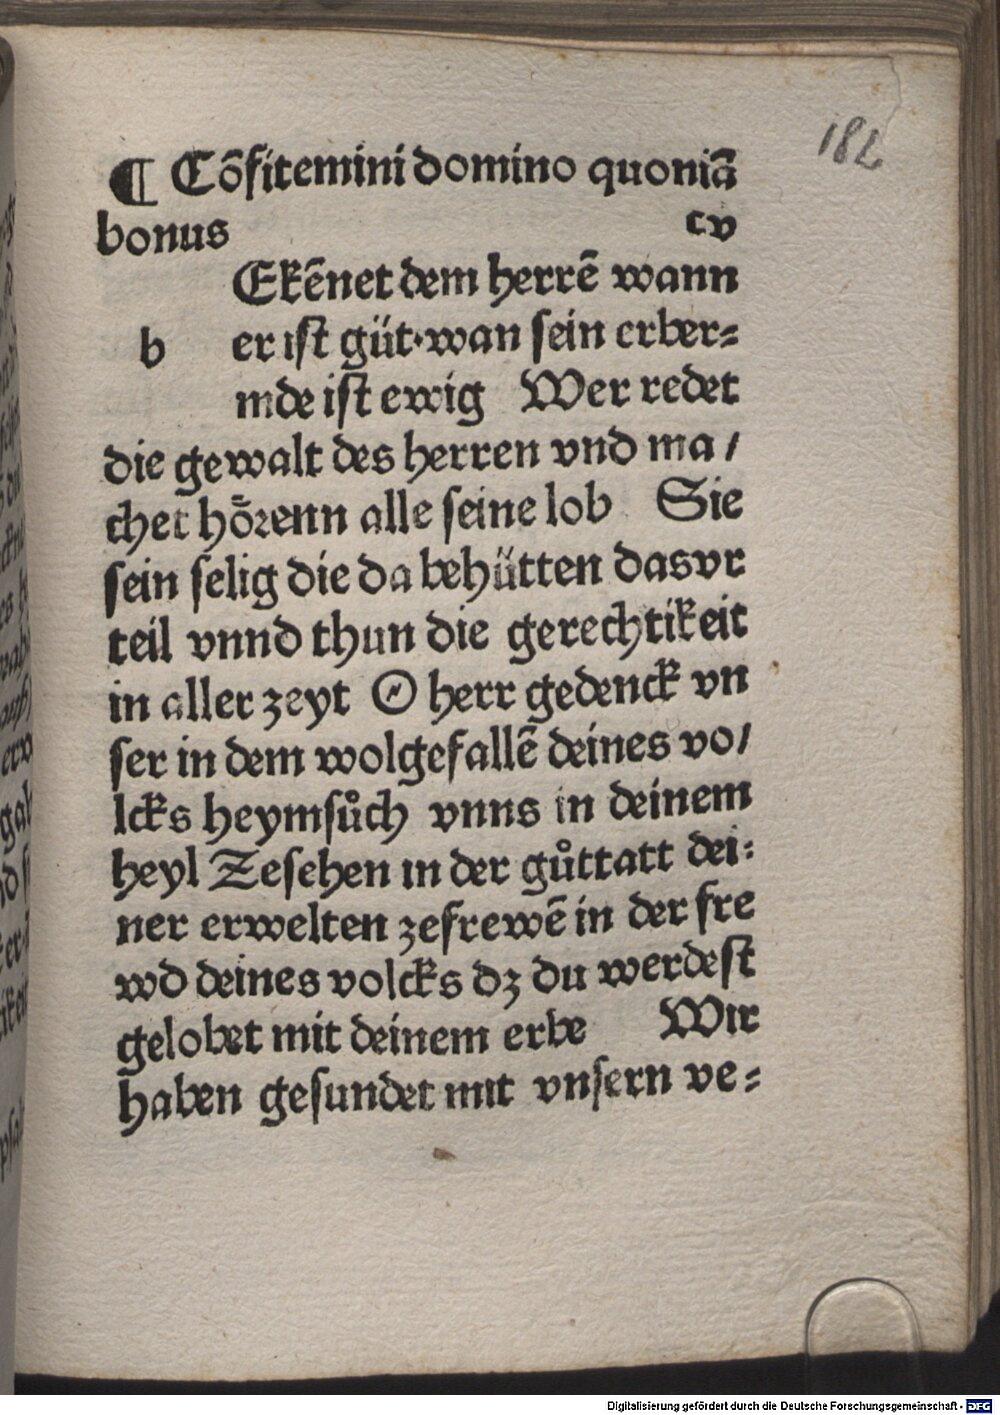 182
¶ Cōfitemini domino quoniā
bonus cv
Ekēnet dem herrē wann
b er ist güt·wan sein erber=
mde ist ewig Wer redet
die gewalt des herren vnd ma/
chet hőrenn alle seine lob Sie
sein selig die da behütten dasvr
teil vnnd thun die gerechtikeit
in aller zeyt O herr gedenck vn
ser in dem wolgefallē deines vo/
lcks heymsůch vnns in deinem
heyl Zesehen in der gůttatt dei:
ner erwelten zefrewē in der fre
wd deines volcks dz du werdest
gelobet mit deinem erbe Wir
haben gesundet mit vnsern ve=
Digitalisierung gefördert durch die Deutsche Forschungsgemeinschaft - DFG